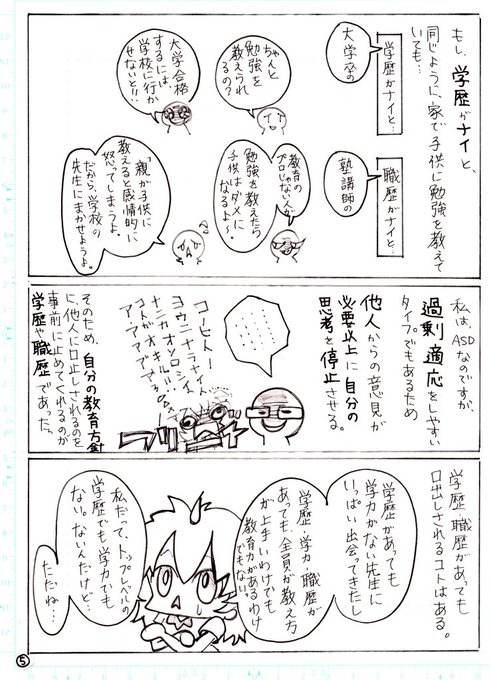 もし、学歴がナイと、
同じように、家で子供に勉強を教えて
いても…
学歴がナイと…
大学などの
ちゃんと
勉強を
教えられ
るの?
大学合格
するには
学校に行か
せないと!!
職歴がナイと…
塾講師の
教育の
プロじゃない人が
勉強を教えたら
子供はダメに
なるよ〜。
「親が子供に
教えると感情的に
怒ってしまうよ。
だから、学校の
先生にまかせようよ。
私は、ASDなのですが、
過剰適応をしやすい
タイプでもあるため
他人からの意見が
必要以上に自分の
思考を停止させる。
コノヒトノ
ヨウニナラナイト
ナニカオソロシイ
コトガオキル…
そのため、自分の教育方針
に、他人に口出しされるのを
事前に止めてくれるのが
学歴や職歴であった。
学歴、職歴があっても
口出しされるコトはある。
学歴があっても
学力がない先生に
いっぱい出会ってきたし
学歴、学力、職歴が
あっても、全員が教え方
が上手いわけでも
教育力があるわけ
でもない。
私だって、トップレベルの
学歴でも学力でも
ない。ないんだけど…
ただね…
⑤